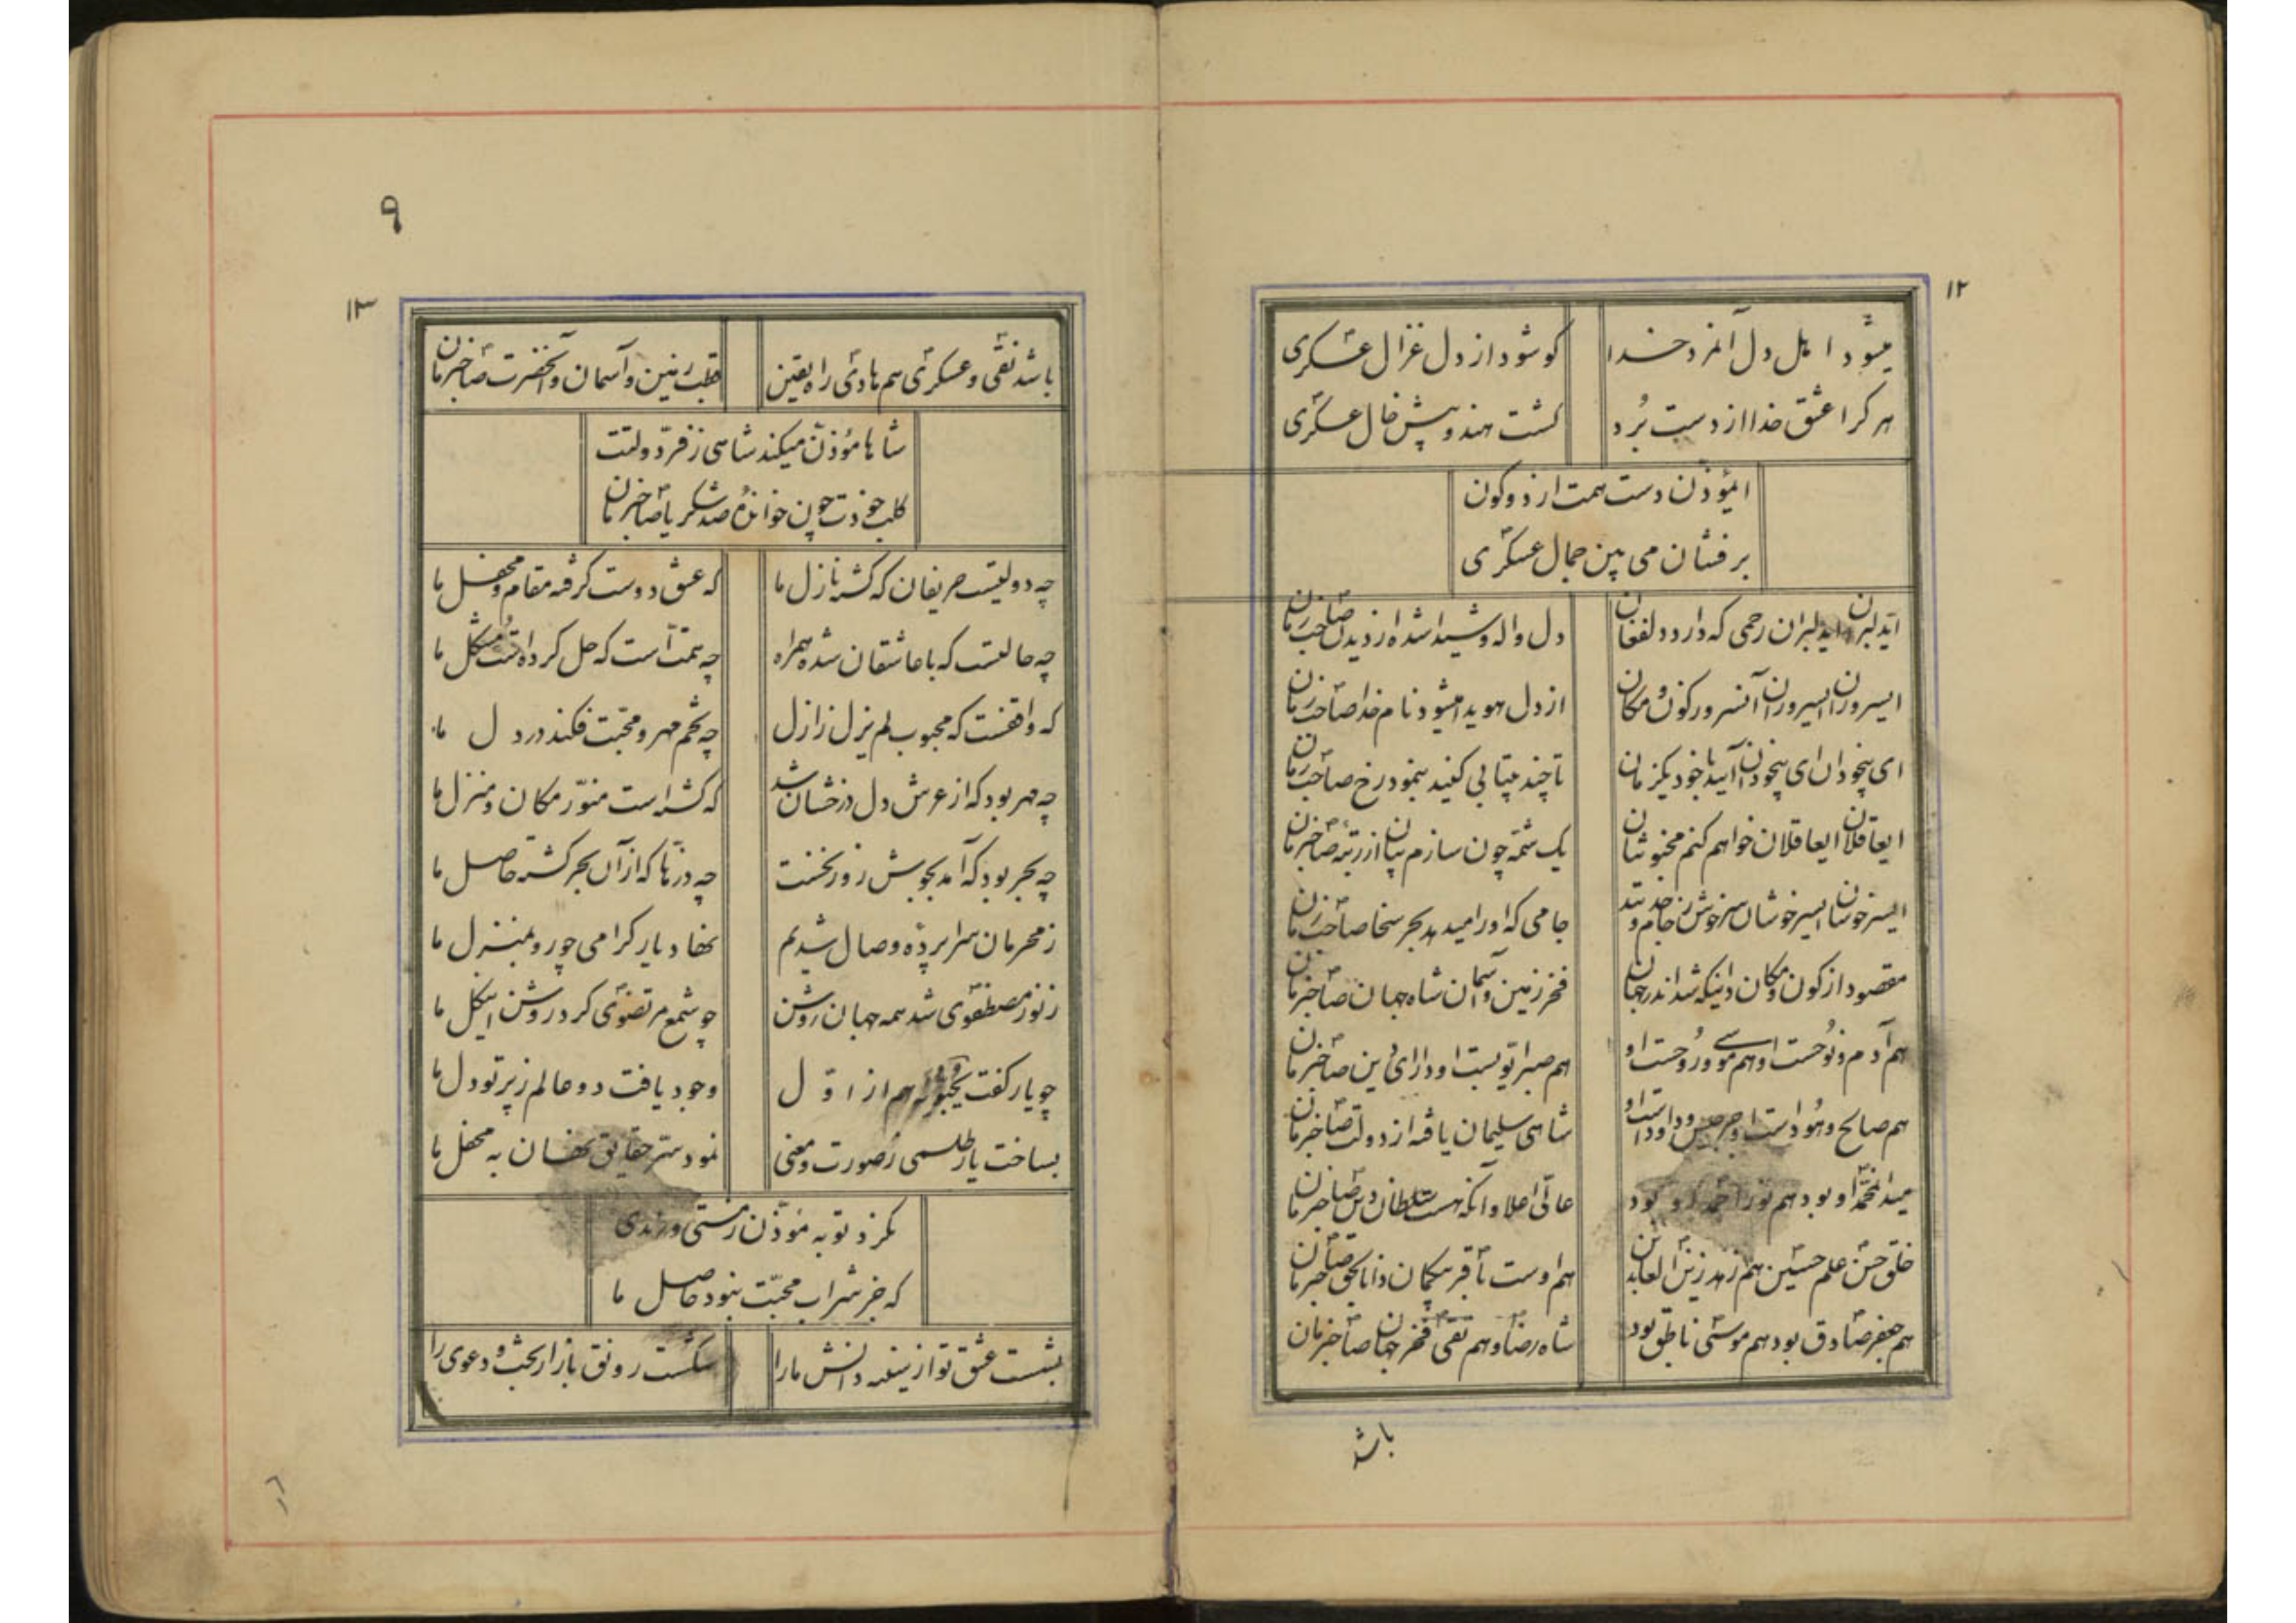 ۱۲
میشود اهل دل آنمرد خدا
کو شود از دل غزال عسکری
هر کرا عشق خدا از دست بُرد
گشت هندو پیش خال عسکری
ایمؤذن دست همت از دو کون
برفشان می بین جمال عسکری
ایدلبران ایدلبران رحمی که دارد دلفغان
دل واله و شیدا شده از دیدن صاحب زمان
ایسروران ایسروران آنسرور کون و مکان
از دل هویدا میشود نام خدا صاحب زمان
ای بیخودان ای بیخودان آیید با خود یکزمان
تا چند بیتابی کنید بنمود رخ صاحب زمان
ایعاقلان ایعاقلان خواهم کنم مجنونتان
یک شمّه چون سازم بیان از رتبه صاحب زمان
ایسرخوشان ایسرخوشان سرخوش ز جام
جامی که او را میدهد بحر سخا صاحب زمان
مقصود از کون و مکان دانیکه شد اندر جهان
فخر زمین و آسمان شاه جهان صاحب زمان
هم آدم و نوحست او هم موسی و روحست او
هم صبر ایوبست او دارای دین صاحب زمان
هم صالح و هُود است او جرجیس و داود است او
شاهی سلیمان یافته از دولت صاحب زمان
میدان محمّد او بود هم نور احمد او بود
عالیّ اعلا و آنکه هست سلطان دین صاحب زمان
خلق حسن علم حسین هم زهد زین العابدین
هم اوست باقر بیگمان دانا بحق صاحب زمان
هم جعفر صادق بود هم موسی ناطق بود
شاه رضا و هم تقی فخر جهان صاحب زمان
باشد
۹
۱۳
باشد نقی و عسکری هم هادی راه یقین
قطب زمین و آسمان و آنحضرت صاحب زمان
شاها مؤذن میکند شاهی ز فرّ دولتت
کلب خودت چون خواندهٔ صد شکر یا صاحب زمان
چه دولیتست حریفان که گشته نازل ما
که عشق دوست گرفته مقام و محفل ما
چه حالتست که با عاشقان شده همراه
چه همتّ است که حل کرده است مشکل ما
که واقفست که محبوب لم یزل ز ازل
چه تخم مهر و محبّت فکند در دل ما
چه مهر بود که از عرش دل درخشان شد
که گشته است منوّر مکان و منزل ما
چه بحر بود که آمد بجوش روز نخست
چه درّها که از آن بحر گشته حاصل ما
ز محرمان سراپردهٔ وصال شدیم
نهاد یار گرامی چو رو بمنزل ما
ز نور مصطفوی شد همه جهان روشن
چو شمع مرتضوی کرد روشن این گل ما
چو یار گفت یحبونه هم از اوّل
وجود یافت دو عالم ز پرتو دل ما
بساخت یار طلسمی ز صورت و معنی
نمود سّر حقایق نهان به محفل ما
نکرد توبه مؤذّن ز مستی و رندی
که جز شراب محبّت نبود حاصل ما
بشست عشق تو از سینه دانش ما را
شکست رونق بازار بحث و دعوی را